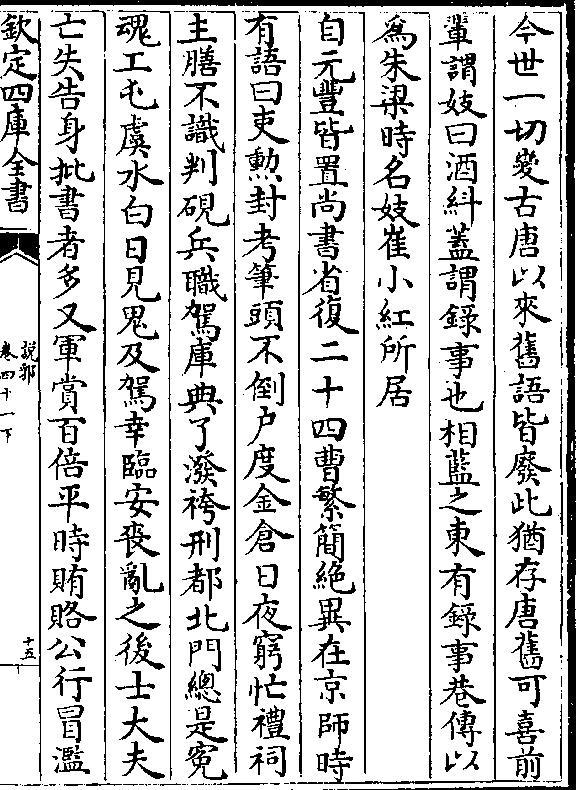 今世一切變古唐以來舊語皆廢此猶存唐舊可喜前
輩謂妓曰酒糾蓋謂錄事也相藍之東有錄事巷傳以
爲朱梁時名妓崔小紅所居
自元豐皆置尚書省復二十四曹繁簡絶異在京師時
有語曰吏勲封考筆頭不倒户度金倉日夜窮忙禮祠
主膳不識判硯兵職駕庫典了潑袴刑都北門總是寃
魂工屯虞水白日見鬼及駕幸臨安喪亂之後士大夫
亡失告身批書者多又軍賞百倍平時賄賂公行冒濫
欽定四庫全書
說郛
卷四十一下
十五